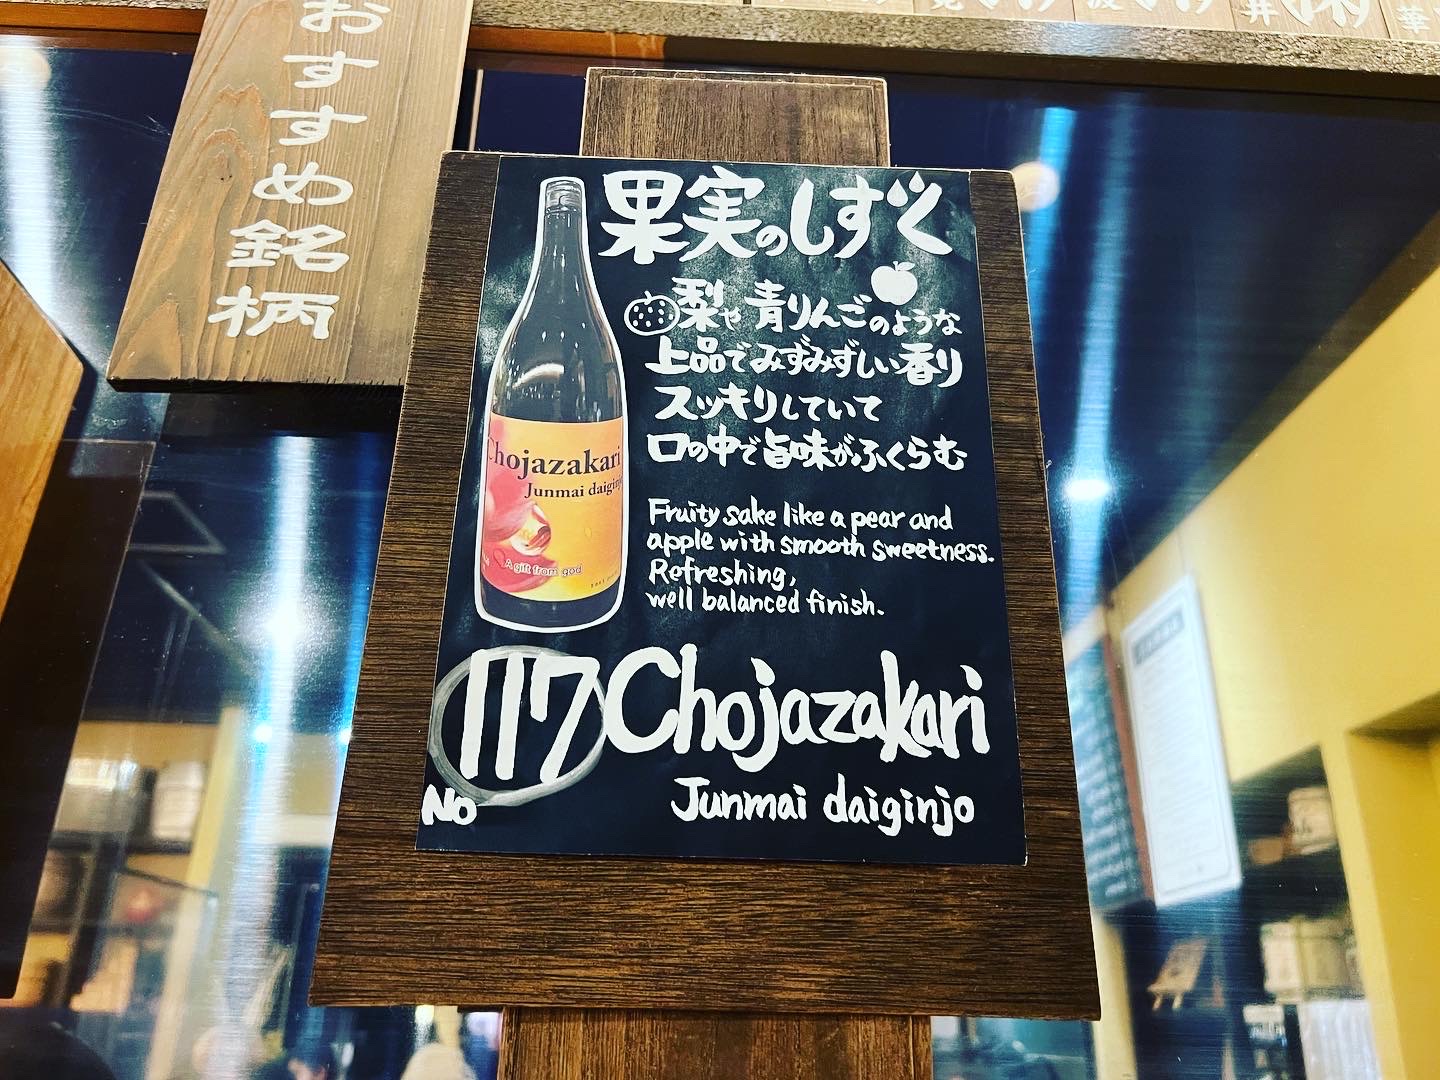 おすすめ銘柄
果実のしずく
梨や青りんごのような
上品でみずみずしい香り
スッキリしていて
口の中で旨味がふくらむ
Fruity sake like a pear and
apple with smooth sweetness.
Refreshing,
well balanced finish.
Chojazakari
Junmai daiginjo
A gift from god
No 117 Chojazakari
Junmai daiginjo